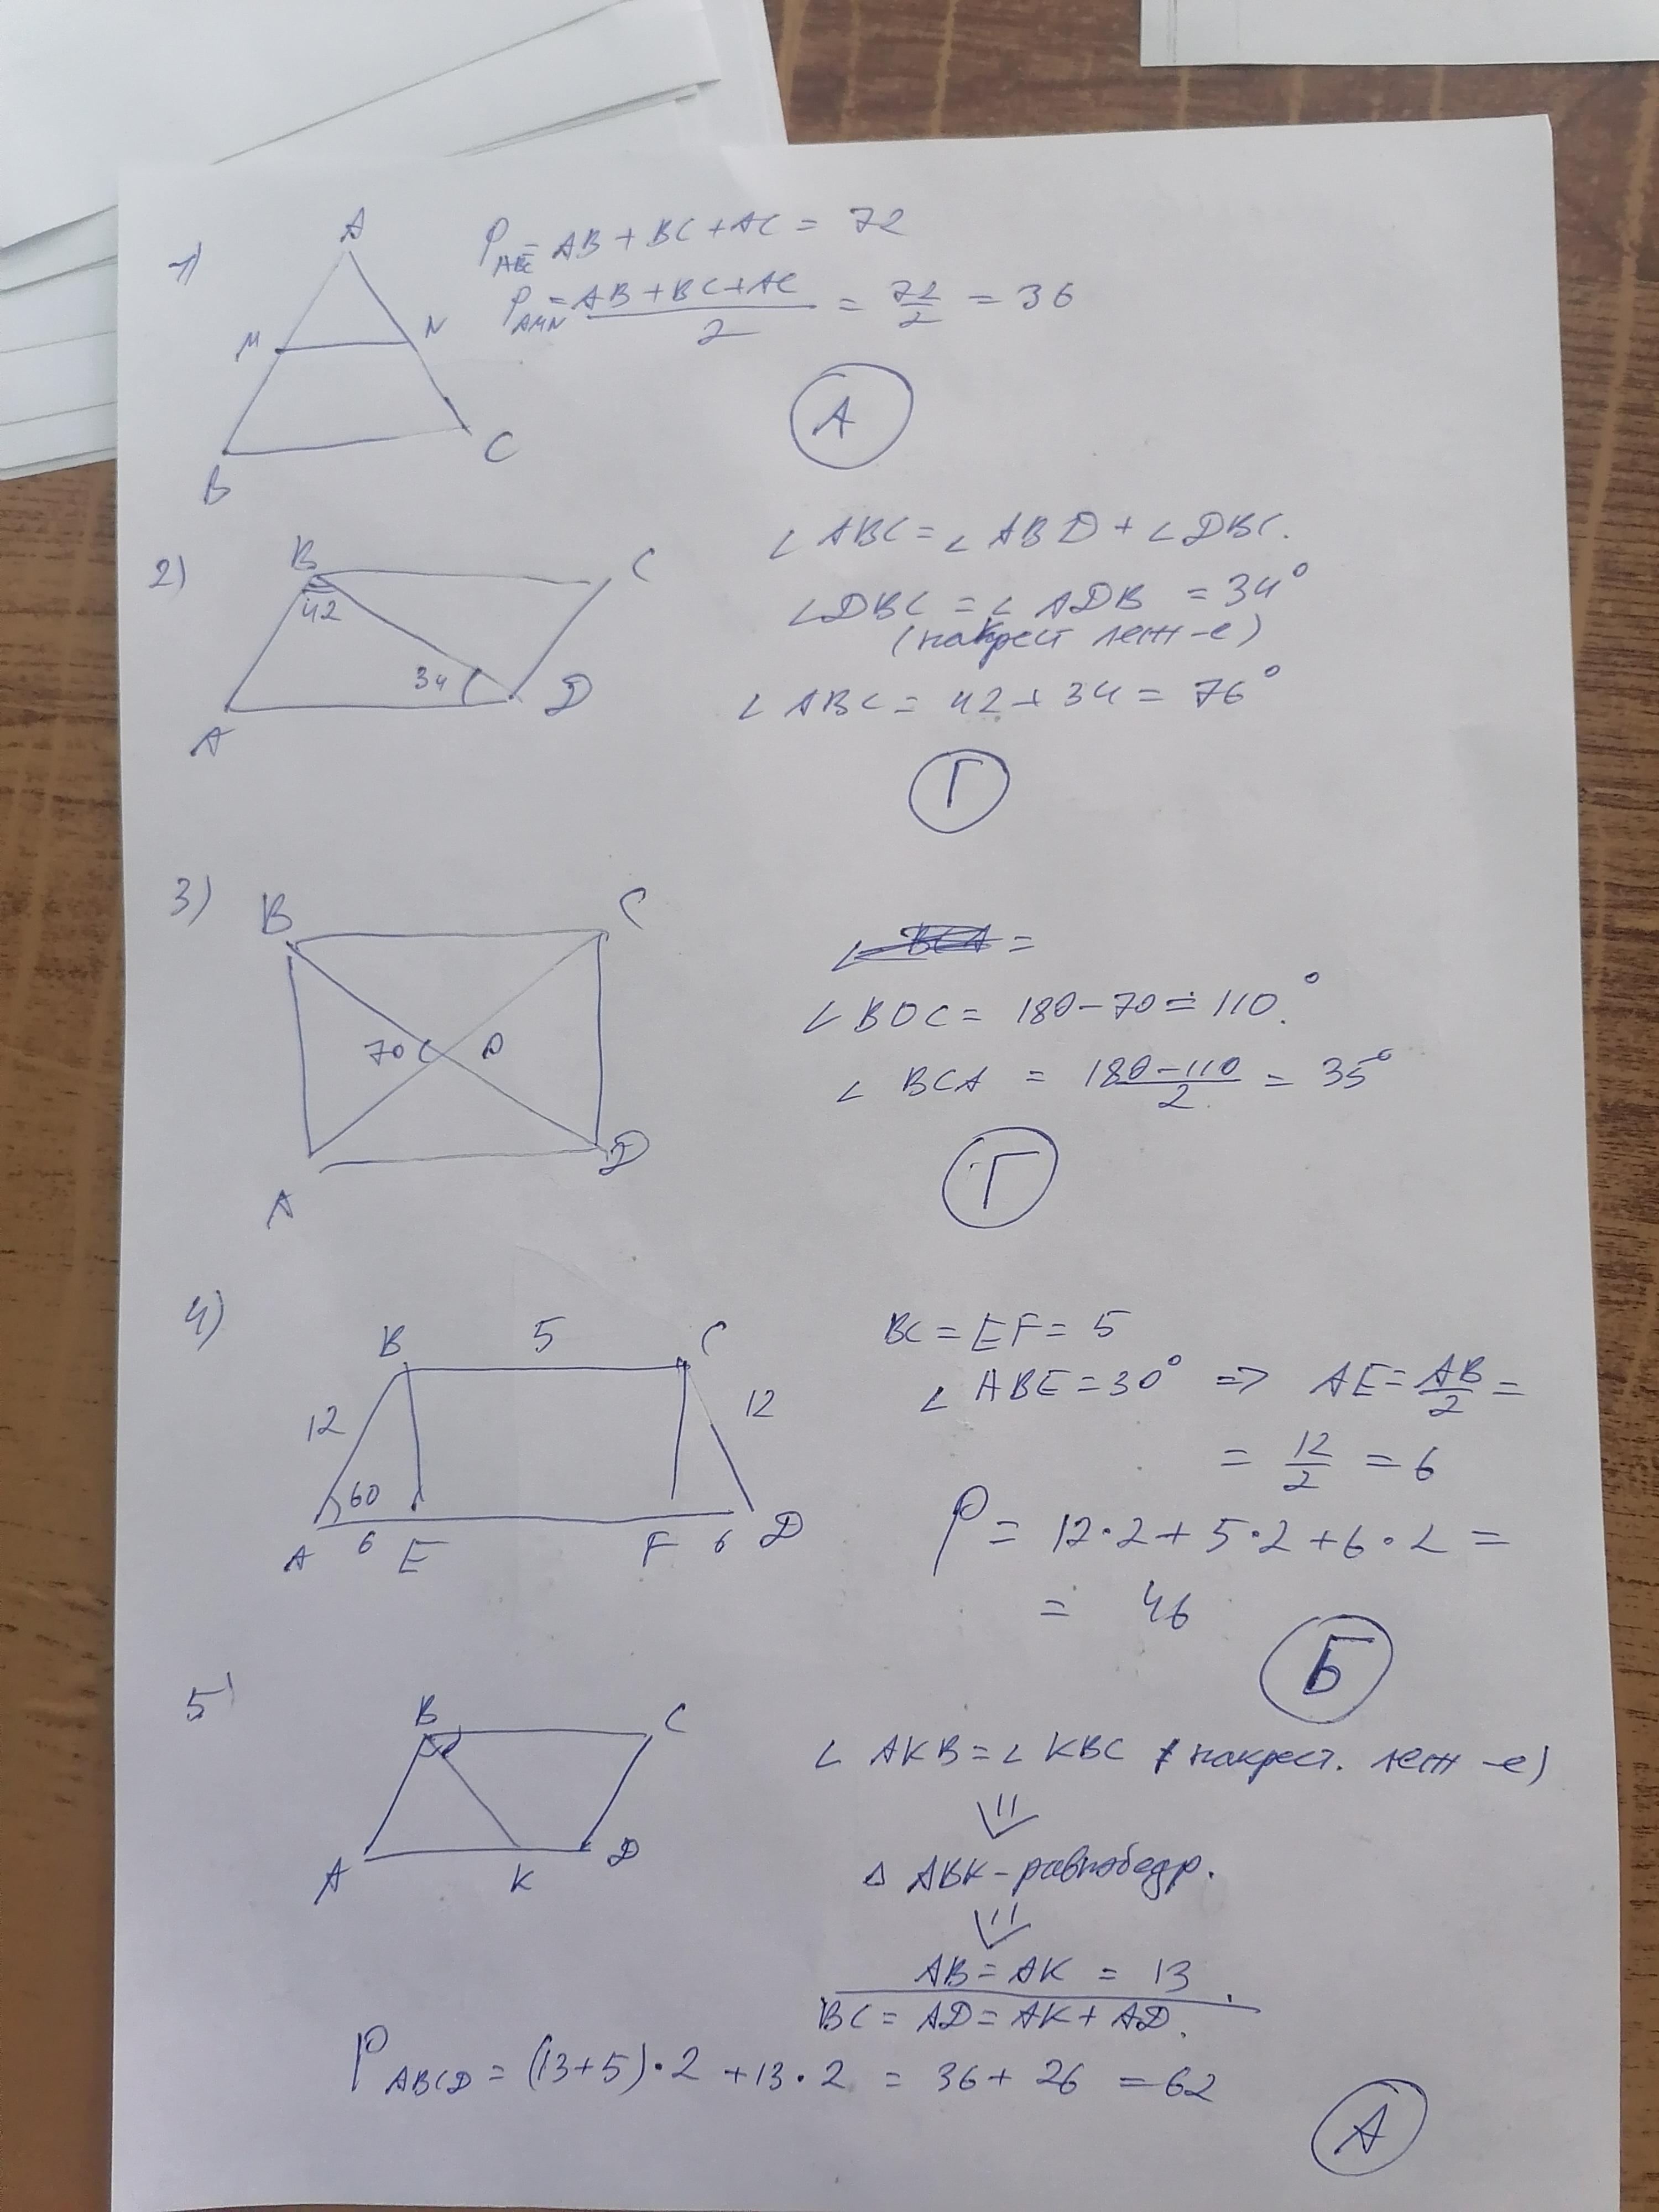 1)
A
M
N
B
C
P_ABC = AB + BC + AC = 72
P_AMN = (AB + BC + AC)/2 = 72/2 = 36
А
2)
B
C
42
34
A
D
∠ ABC = ∠ ABD + ∠ DBC.
∠ DBC = ∠ ADB = 34°
(накрест леж-е)
∠ ABC = 42 + 34 = 76°
Г
3)
B
C
70
O
A
D
∠ BCA =
∠ BOC = 180 - 70 = 110°.
∠ BCA = (180 - 110)/2 = 35°
Г
4)
B 5 C
12
12
60
A 6 E F 6 D
BC = EF = 5
∠ ABE = 30° => AE = AB/2 =
= 12/2 = 6
P = 12·2 + 5·2 + 6·2 =
= 46
Б
5)
B
C
A
K
D
∠ AKB = ∠ KBC (накрест. леж-е)
△ ABK - равнобедр.
AB = AK = 13.
BC = AD = AK + AD.
P_ABCD = (13+5)·2 + 13·2 = 36 + 26 = 62
А